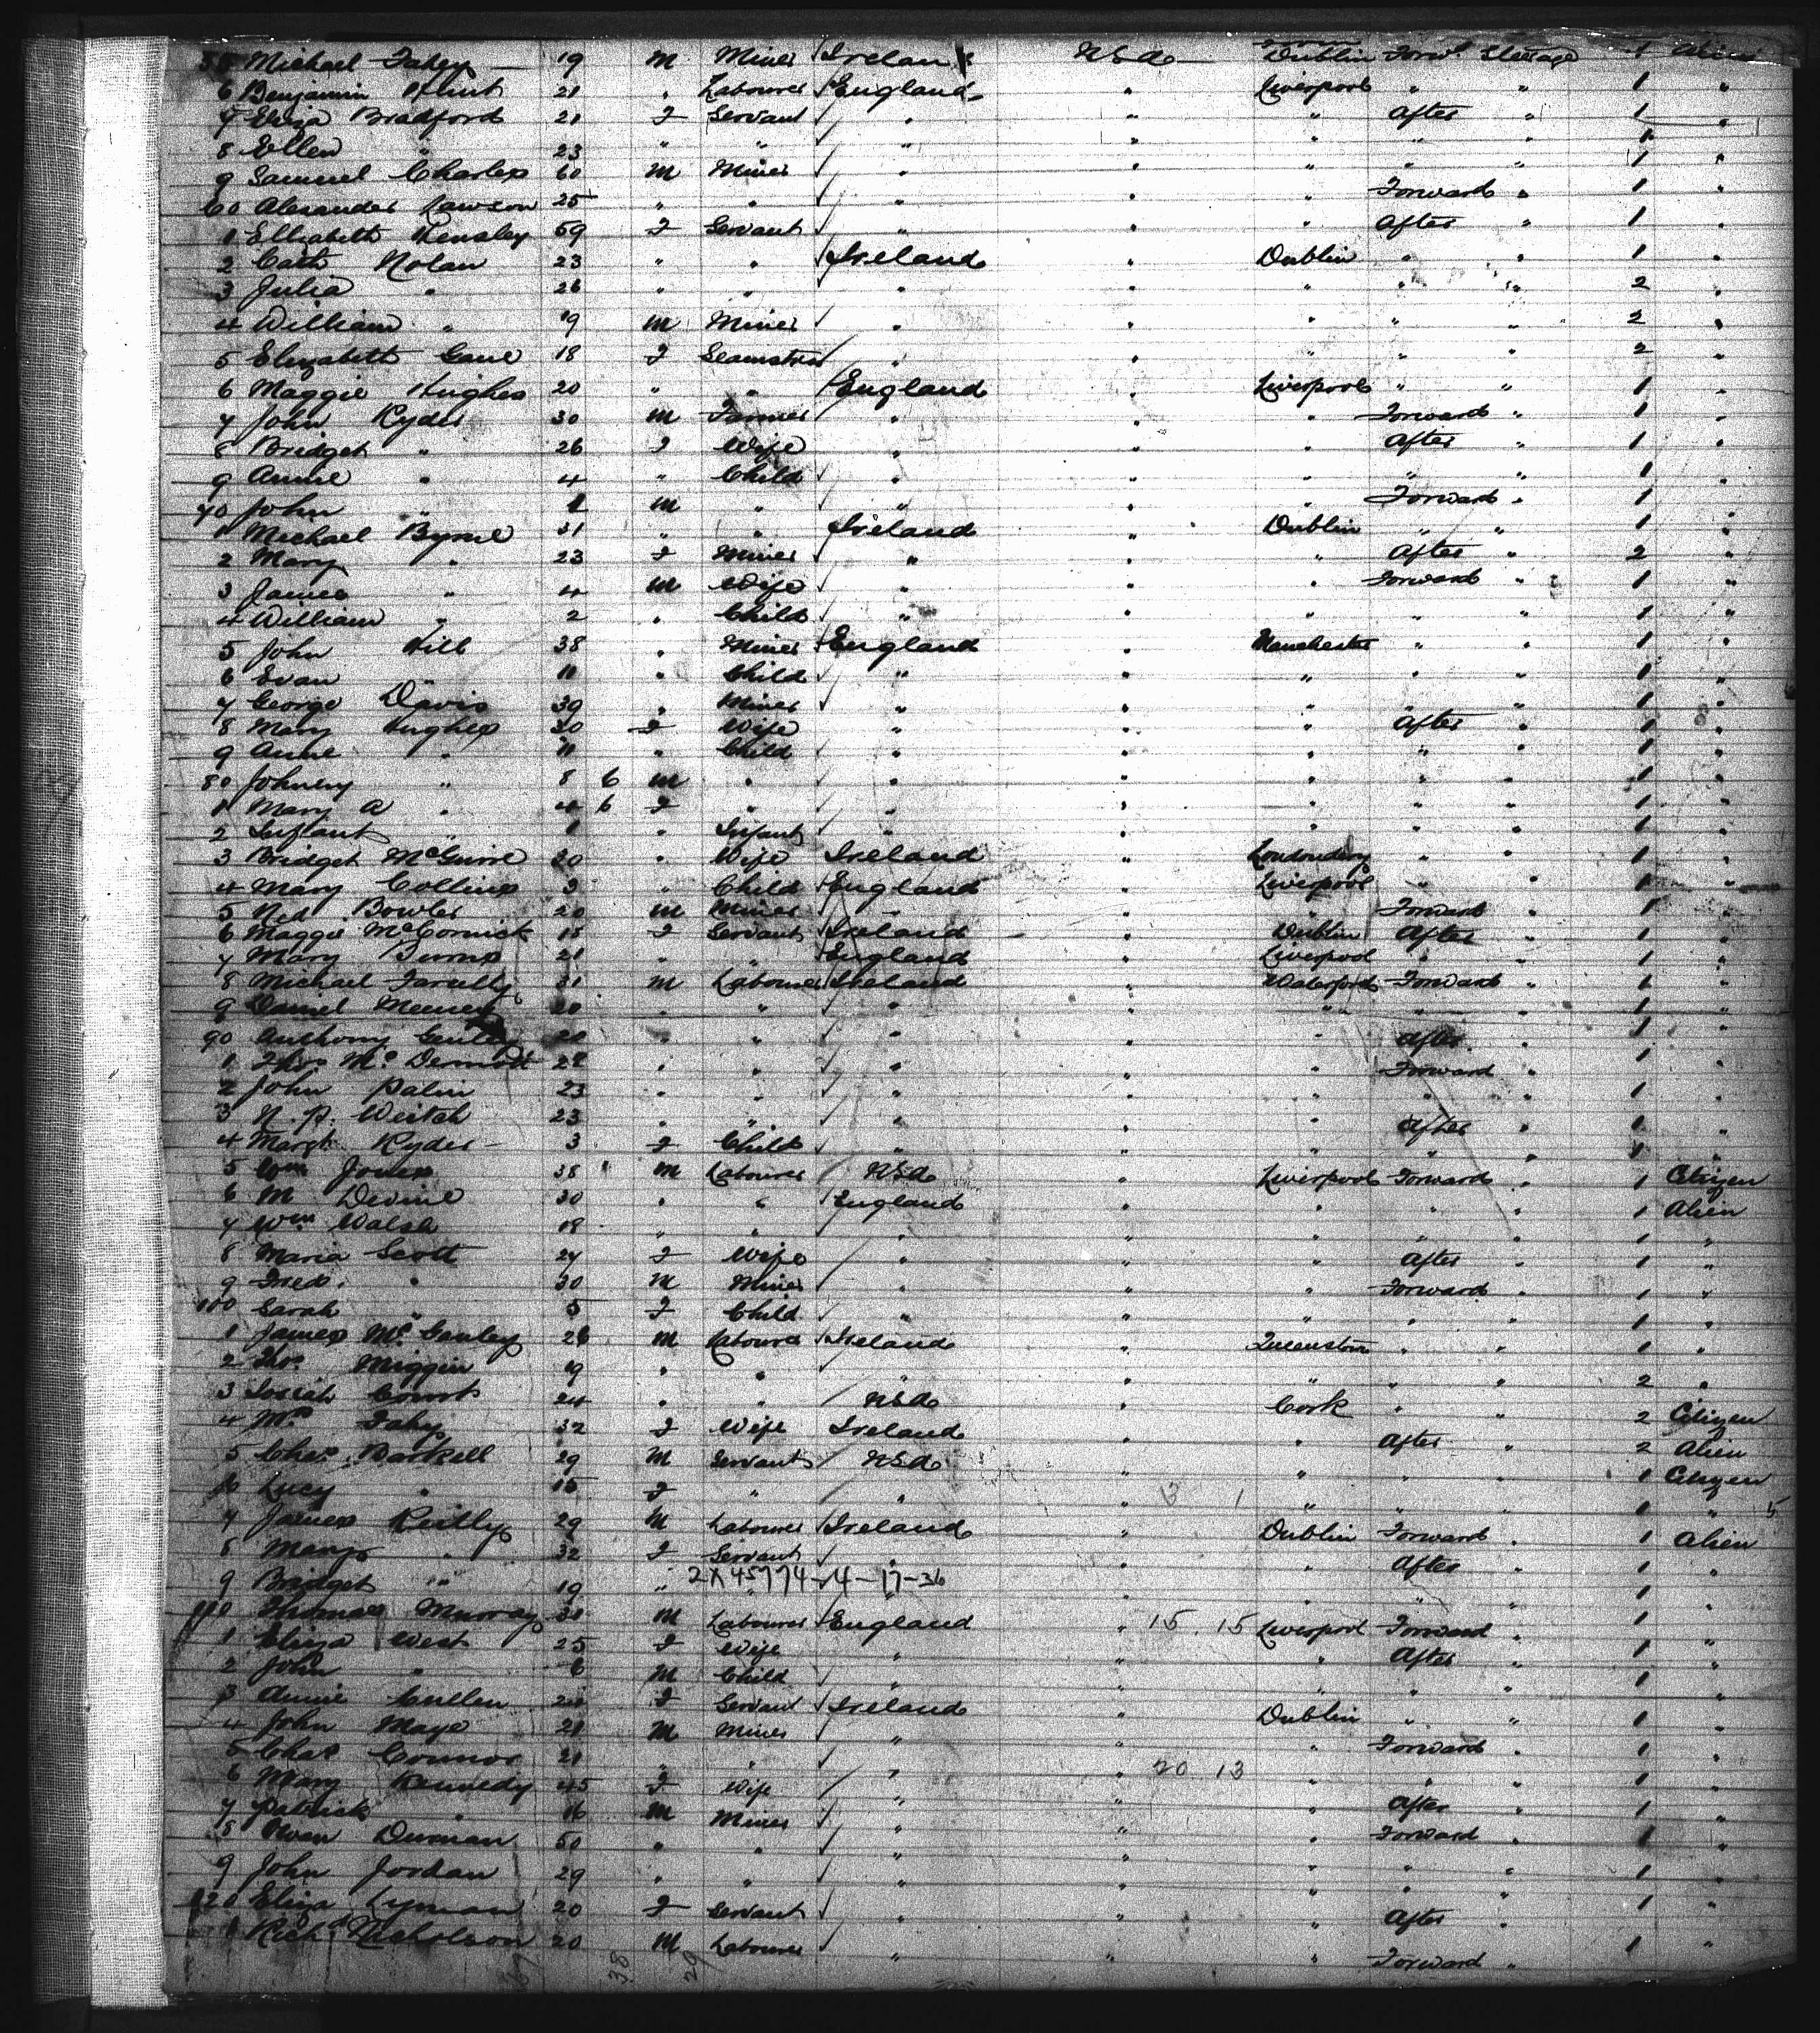 Michael Fahey 19 m Miner Ireland U.S.A Dublin Forwd Steerage 1 Alien
6 Benjamin Hunt 21 " Labourer England " Liverpool " " 1 "
7 Eliza Bradford 21 F Servant " " " After " 1 "
8 Ellen " 23 " " " " " " " 1
9 Samuel Charles 60 m Miner " " " " " 1 "
60 Alexander Lawson 25 " " " " " Forward " 1 "
1 Elizabeth Hensley 59 F Servant " " " After " 1 "
2 Cath Nolan 23 " " Ireland " Dublin " " 1 "
3 Julia " 26 " " " " " " " 2 "
4 William " 19 m Miner " " " " " 2 "
5 Elizabeth Gaul 18 F Seamstress " " " " " 2 "
6 Maggie Hughes 20 " " England " Liverpool " " 1 "
7 John Ryder 30 m Farmer " " " Forward " 1 "
8 Bridget " 26 F Wife " " " After " 1 "
9 Annie " 4 " Child " " " " " 1 "
70 John " 1 m " " " " Forward " 1 "
1 Michael Byrne 31 " " Ireland " Dublin " " 1 "
2 Mary " 23 F Miner " " " After " 2 "
3 James " 4 m Wife " " " Forward " 1 "
4 William " 2 " Child " " " " " 1 "
5 John Hill 38 " Miner England " Manchester " " 1 "
6 Evan 11 " Child " " " " " 1 "
7 George Davis 39 " Miner " " " " " 1 "
8 Mary Hughes 30 F Wife " " " After " 1 "
9 Anne " 11 " Child " " " " " 1 "
80 Johnny " 8 6 m " " " " " " 1 "
1 Mary A " 4 6 F " " " " " " 1 "
2 Infant " 1 " Infant " " " " " 1 "
3 Bridget McGuire 30 " Wife Ireland " Londondery " " 1 "
4 Mary Collins 3 " Child England " Liverpool " " 1 "
5 Ned Bowler 20 m Miner " " " Forward " 1 "
6 Maggie McCormick 18 F Servant Ireland " Dublin After " 1 "
7 Mary 21 " " England " Liverpool " " 1 "
8 Michael Farrelly 31 m Labourer Ireland " Waterford Forward " 1 "
9 Daniel 20 " " " " " " " 1 "
90 Anthony " " " " " After " 1 "
1 Thos McDermott 22 " " " " " Forward " 1 "
2 John Palin 23 " " " " " " " 1 "
3 N. P. Weitch 23 " " " " " After " 1 "
4 Margt Ryder 3 F Child " " " " " 1 "
5 Wm Jones 38 m Labourer U.S.A " Liverpool Forward " 1 Citizen
6 M Devine 30 " " England " " " " 1 Alien
7 Wm Walsh 18 " " " " " " " 1 "
8 Maria Scott 24 F Wife " " " After " 1 "
9 Fred. " 30 M Miner " " " Forward " 1 "
100 Sarah " 5 F Child " " " " " 1 "
1 James McGanley 26 m Labourer Ireland " Queenstown " " 1 "
2 Thos Miggin 19 " " " " " " " 2 "
3 24 " " U.S.A " Cork " " 2 Citizen
4 Mrs Fahy 32 F Wife Ireland " " After " 2 Alien
5 Chas. Barkell 29 M Servant U.S.A " " " " 1 Citizen
6 Lucy " 15 F " " " 13 1 " " " 1 " 5
7 James Reilly 29 M Labourer Ireland " Dublin Forward " 1 Alien
8 Mary " 32 F Servant " " " After " 1 "
9 Bridget " 19 " 2X45774-4-17-36 " " " " 1 "
110 Thomas Murray 31 M Labourer England " 15 . 15 Liverpool Forward " 1 "
1 Eliza West 25 F Wife " " " After " 1 "
2 John " 6 M Child " " " " " 1 "
3 Annie Cullen 24 F Servant Ireland " Dublin " " 1 "
4 John Mayo 21 M Miner " " " Forward " 1 "
5 Chas Connor 21 " " " " 20 . 13 " " " 1 "
6 Mary Kennedy 45 F Wife " " " After " 1 "
7 Patrick " 16 M Miner " " " Forward " 1 "
8 Owen 50 " " " " " " " 1 "
9 John Jordan 29 " " " " " " " 1 "
120 Eliza Lyman 20 F Servant " " " After " 1 "
1 Richd Nicholson 20 M Labourer " " " Forward " 1 "
38 29